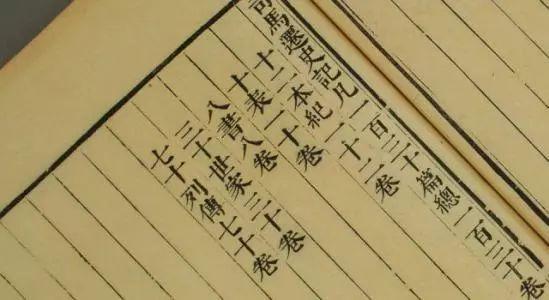 司馬遷史記凡一百三十篇總一百三十卷
十二本紀一十二卷
十表一十卷
八書八卷
三十世家三十卷
七十列傳七十卷